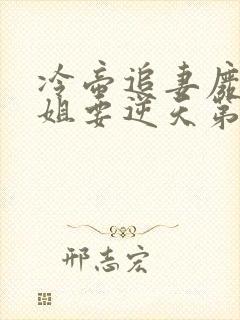 冷帝追妻废
姐要逆天第
邢志宏